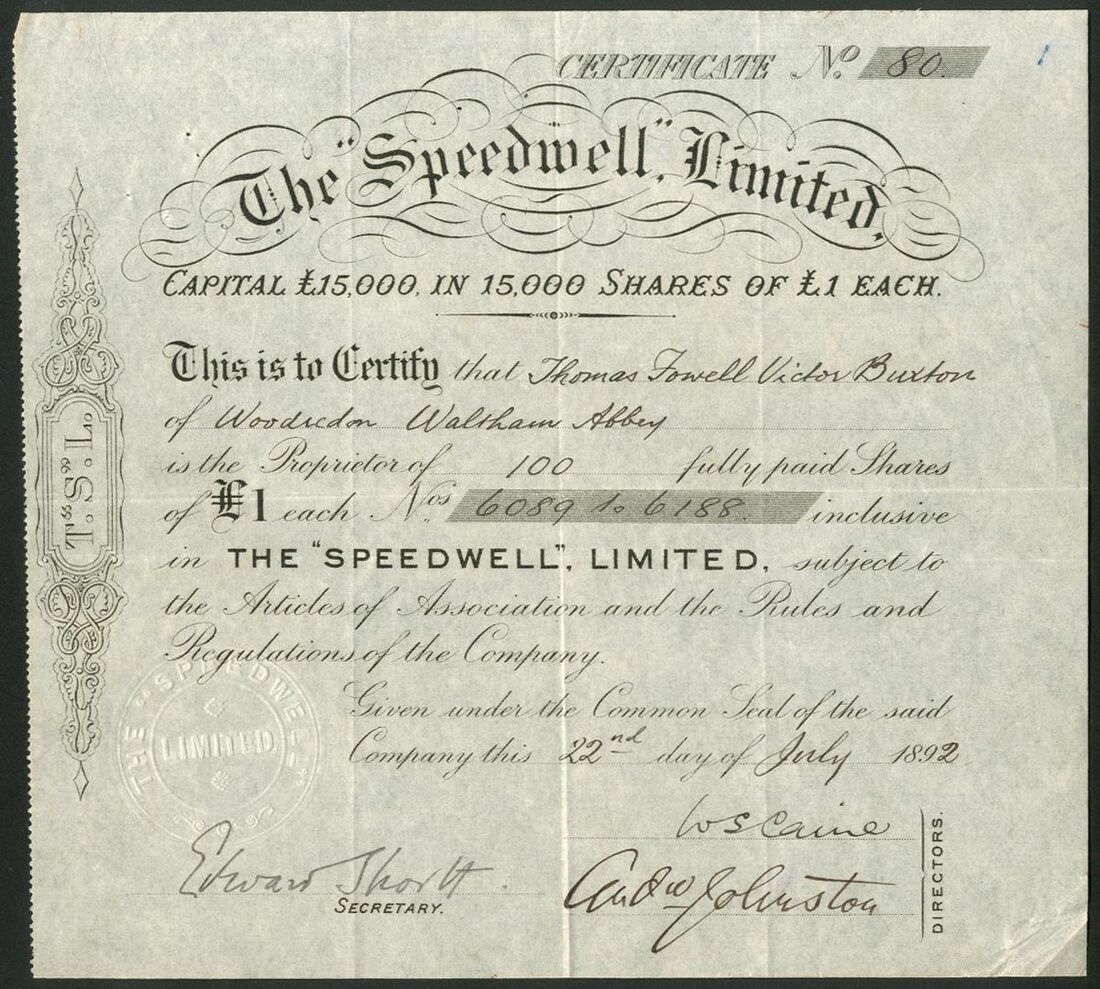 CERTIFICATE No. 80.
The "Speedwell", Limited.
CAPITAL £15,000, IN 15,000 SHARES OF £1 EACH.
This is to Certify that Thomas Fowell Victor Buxton
of Woodredon Waltham Abbey
is the Proprietor of 100 fully paid Shares
of £1 each Nos. 6089 to 6188. inclusive
in THE "SPEEDWELL", LIMITED, subject to
the Articles of Association and the Rules and
Regulations of the Company.
Given under the Common Seal of the said
Company this 22nd day of July 1892
T. "S." L.
THE "SPEEDWELL"
LIMITED
W S Caine
Andw Johnston
DIRECTORS.
Edward Shortt.
SECRETARY.